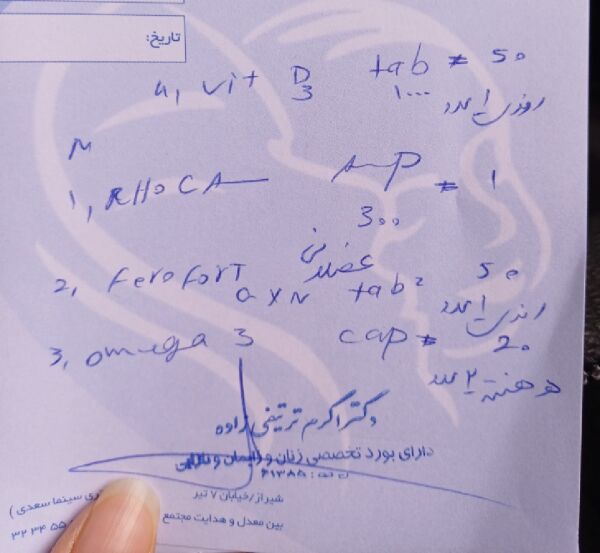 تاریخ:
4, vit D3 tab ≠ 50
1000
روزی ۱ عدد
N
1, RHOGA Amp ≠ 1
300
عضلانی
2, Ferofort tab 50
روزی ۱ عدد
3, omega 3 cap ≠ 20
هفته ۲ عدد
دکتر اکرم
زاده
دارای بورد تخصصی زنان و زایمان و نازایی
شیراز/خیابان ۷ تیر
ی سینما سعدی )
بین معدل و هدایت مجتمع